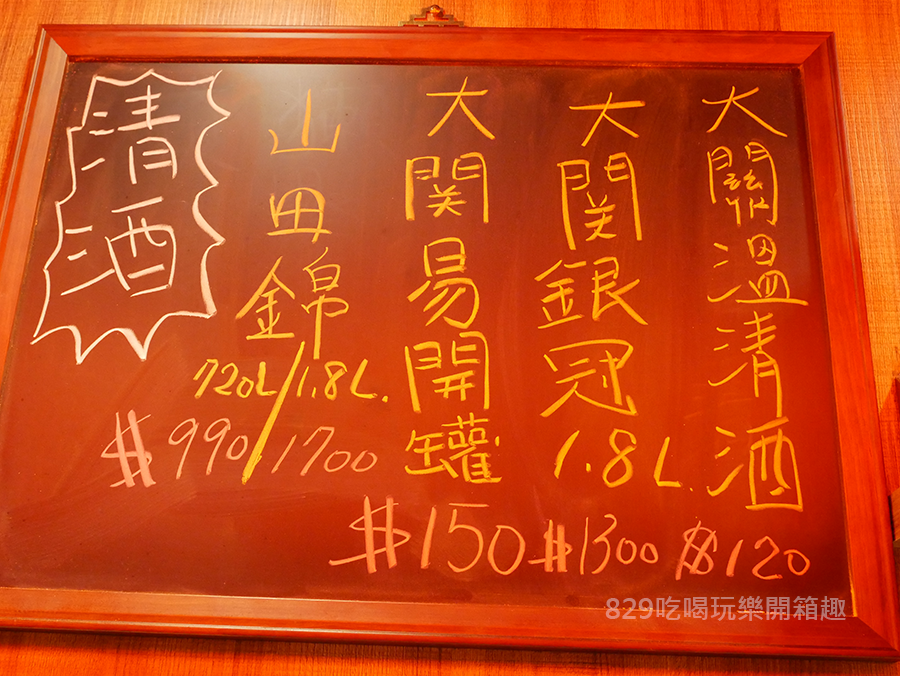 大關溫清酒
$120
大関銀冠1.8L.
$1300
大関易開罐
$150
山田錦
720L/1.8L.
$990/1700
清酒
829吃喝玩樂開箱趣